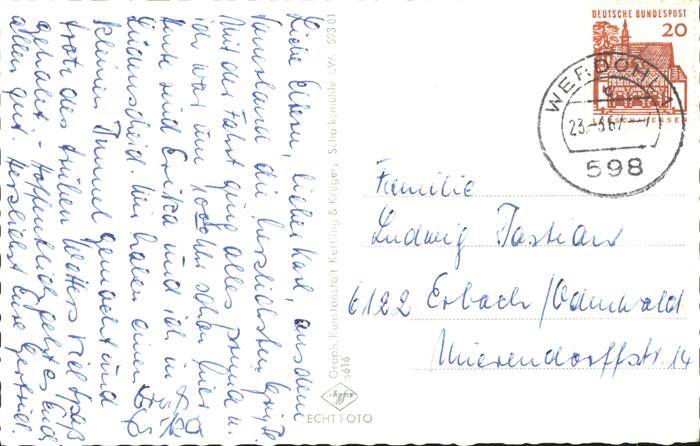 Liebe Eltern, lieber Karl, aus dem
Sauerland die herzlichsten Grüße
Mit der Fahrt ging alles prima u.
ich war um 10 Uhr schon hier
Heute sind Erika und ich in
Lüdenscheid. Wir haben einen
kleinen Bummel gemacht und
trotz des trüben Wetters viel Spaß
gehabt. - Hoffentlich geht es Euch
allen gut. Herzlichst Eure Gertrud.
Erika
Graph. Kunstanstalt Kettling & Krüger, Schalksmühle i.W. 593 01
616
Agfa
ECHT FOTO
DEUTSCHE BUNDESPOST
20
LORSCH/HESSEN
WERDOHL 1
23.-3.67.--7
598
Familie
Ludwig Bastian
6122 Erbach/Odenwald
Mierendorffstr. 14